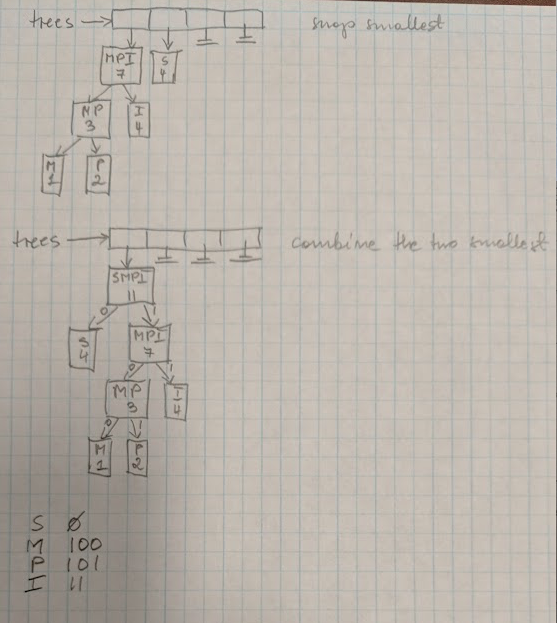 trees → swap smallest
MPI S
7 4
MP I
3 4
M P
1 2
trees → combine the two smallest
SMPI
11
0 1
S MPI
4 7
0 1
MP I
3 4
0 1
M P
1 2
S 0
M 100
P 101
I 11